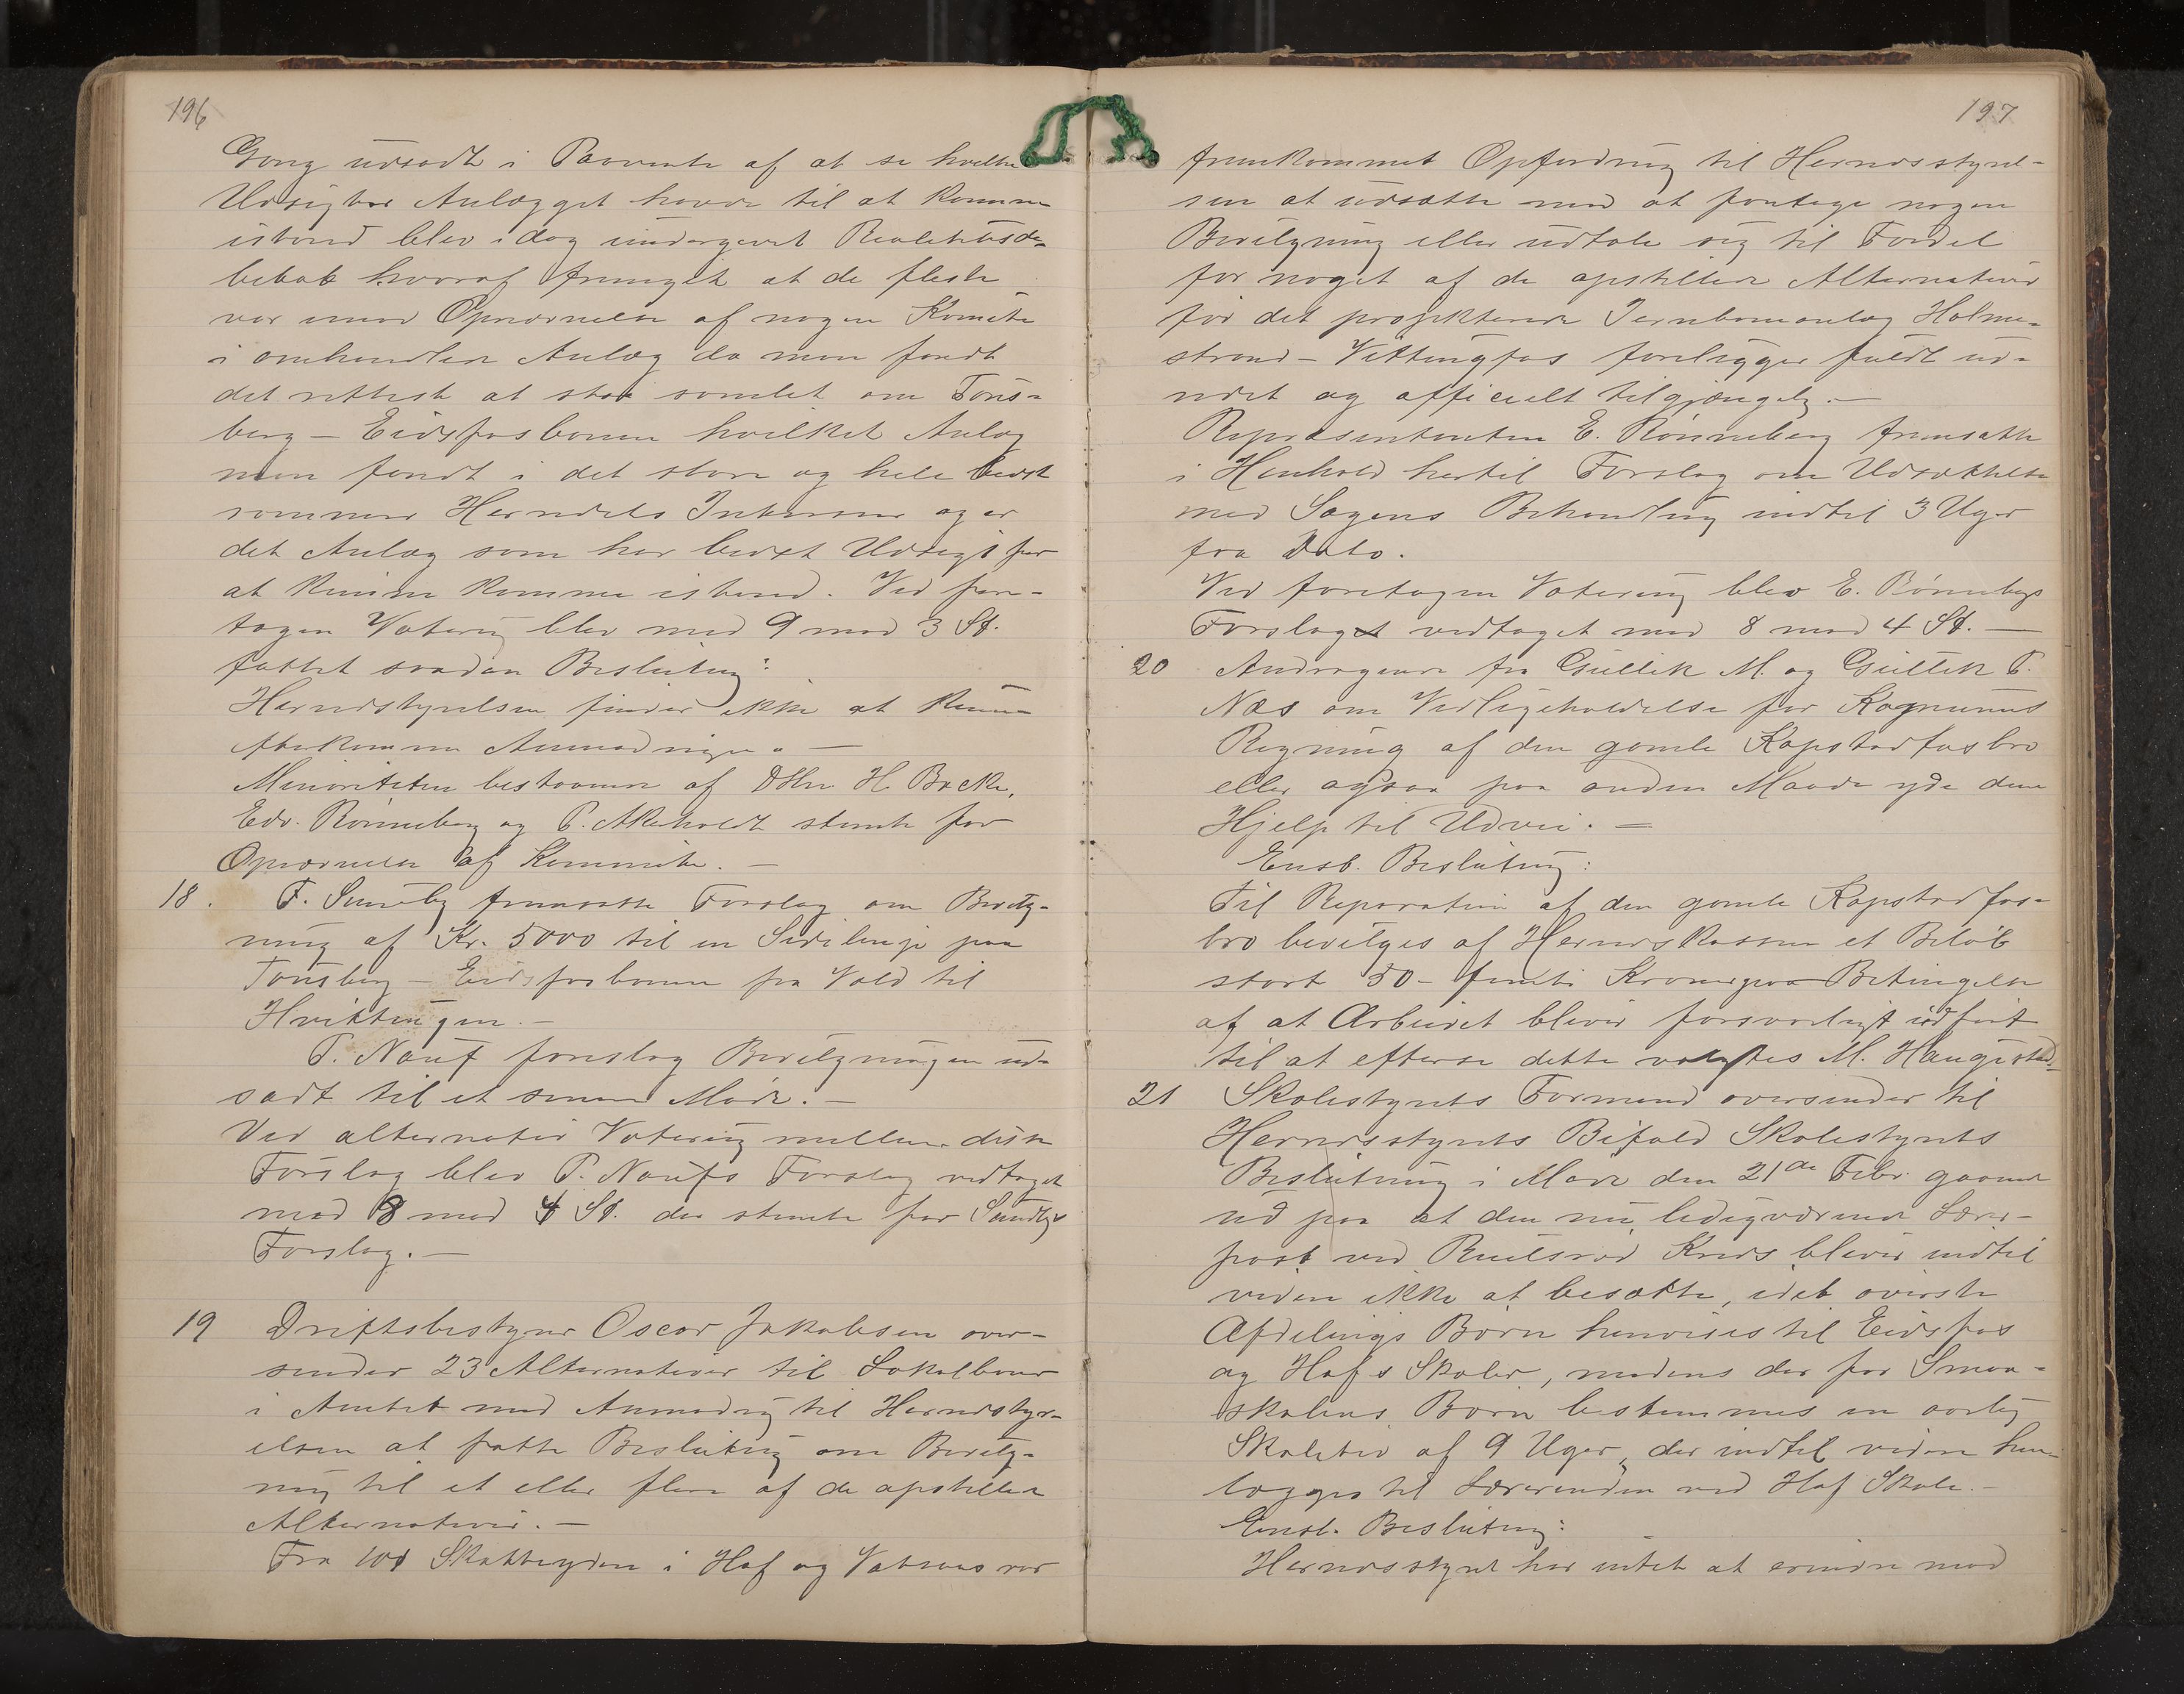 196
Gang udsadt i Paavente af at se hvilke
Udsigter Anlægget havde til at komme
istand blev idag undergivet Realitetsde-
bebat hvoraf fremgik at de fleste
var imod Opnævnelse af nogen Komite
i omhandlede Anlæg da man fandt
det rettest at staa samlet om Tøns-
berg – Eidsfosbanen hvilket Anlæg
man fandt i det store og hele bedst
sammer Herredets Interesser og er
det Anlæg som har bedst Udsigt for
at kunne komme istand. Ved fore-
tagen Votering blev med 9 mod 3 St.
fattet saadan Beslutning:
Herredstyrelsen finder ikke at kunne
efterkomme Anmodningen. —
Minoriteten bestaaende af DHrr H. Backe,
Edv. Rønneberg og P. Akerholdt stemte for
Opnævnelse af Kommite. —
18. F. Sundby fremsatte Forslag om Bevilg-
ning af Kr. 5000 til en Sidelinje paa
Tønsberg – Eidsfosbanen fra Vold til
Hvittingen. —
P. Nauf foreslog Bevilgningen ud-
sadt til et senere Møde. —
Ved alternativ Votering mellem disse
Forslag blev P. Naufs Forslag vedtaget
med 8 mod 4 St. der stemte for Sundbys
Forslag. —
19 Driftsbestyrer Oscar Jakobsen over-
sender 23 Alternativer til Lokalbaner
i Amtet med Anmodning til Herredstyr-
elsen at fatte Beslutning om Bevilg-
ning til et eller flere af de opstillede
Alternativer. —
Fra 101 Skatteydere i Hof og Vassaas var
197
fremkommet Opfordring til Herredsstyrel-
sen at udsætte med at foretage nogen
Bevilgning eller udtale sig til Fordel
for noget af de opstillede Alternativer
før det projekterede Jernbaneanlæg Holme-
strand – Vittingfos foreligger fuldt ud-
redet og officielt tilgjængelig. —
Repræsentanten E. Rønneberg fremsatte
i Henhold hertil Forslag om Udsættelse
med Sagens Behandling indtil 3 Uger
fra Dato.
Ved foretagen Votering blev E. Rønnebergs
Forslaget vedtaget med 8 mod 4 St. —
20 Andragende fra Gullik M. og Gullik P.
Næs om Vedligeholdelse for Kommunens
Regning af den gamle Kopstadfosbro
eller ogsaa paa anden Maade yde dem
Hjelp til Udvei. =
Ensb. Beslutning:
Til Reparation af den gamle Kopstadfos-
bro bevilges af Herredskassen et Beløb
stort 50 – femti Kroner paa Betingelse
af at Arbeidet bliver forsvarligt udført
til at efterse dette valgtes M. Haugestad.
21 Skolestyrets Formand oversender til
Herredsstyrets Bifald Skolestyrets
Beslutning i Møde den 21de Febr. gaaende
ud paa at den nu ledigværende Lærer-
post ved Ruelsrød Kreds bliver indtil
videre ikke at besætte, idet øverste
Afdelings Børn henvises til Eidsfos
og Hofs Skoler, medens der for Smaa-
skolens Børn bestemmes en aarlig
Skoletid af 9 Uger, der indtil videre hen-
lægges til Lærerinden ved Hof Skole. —
Ensb. Beslutning:
Herredsstyret har intet at erindre mod